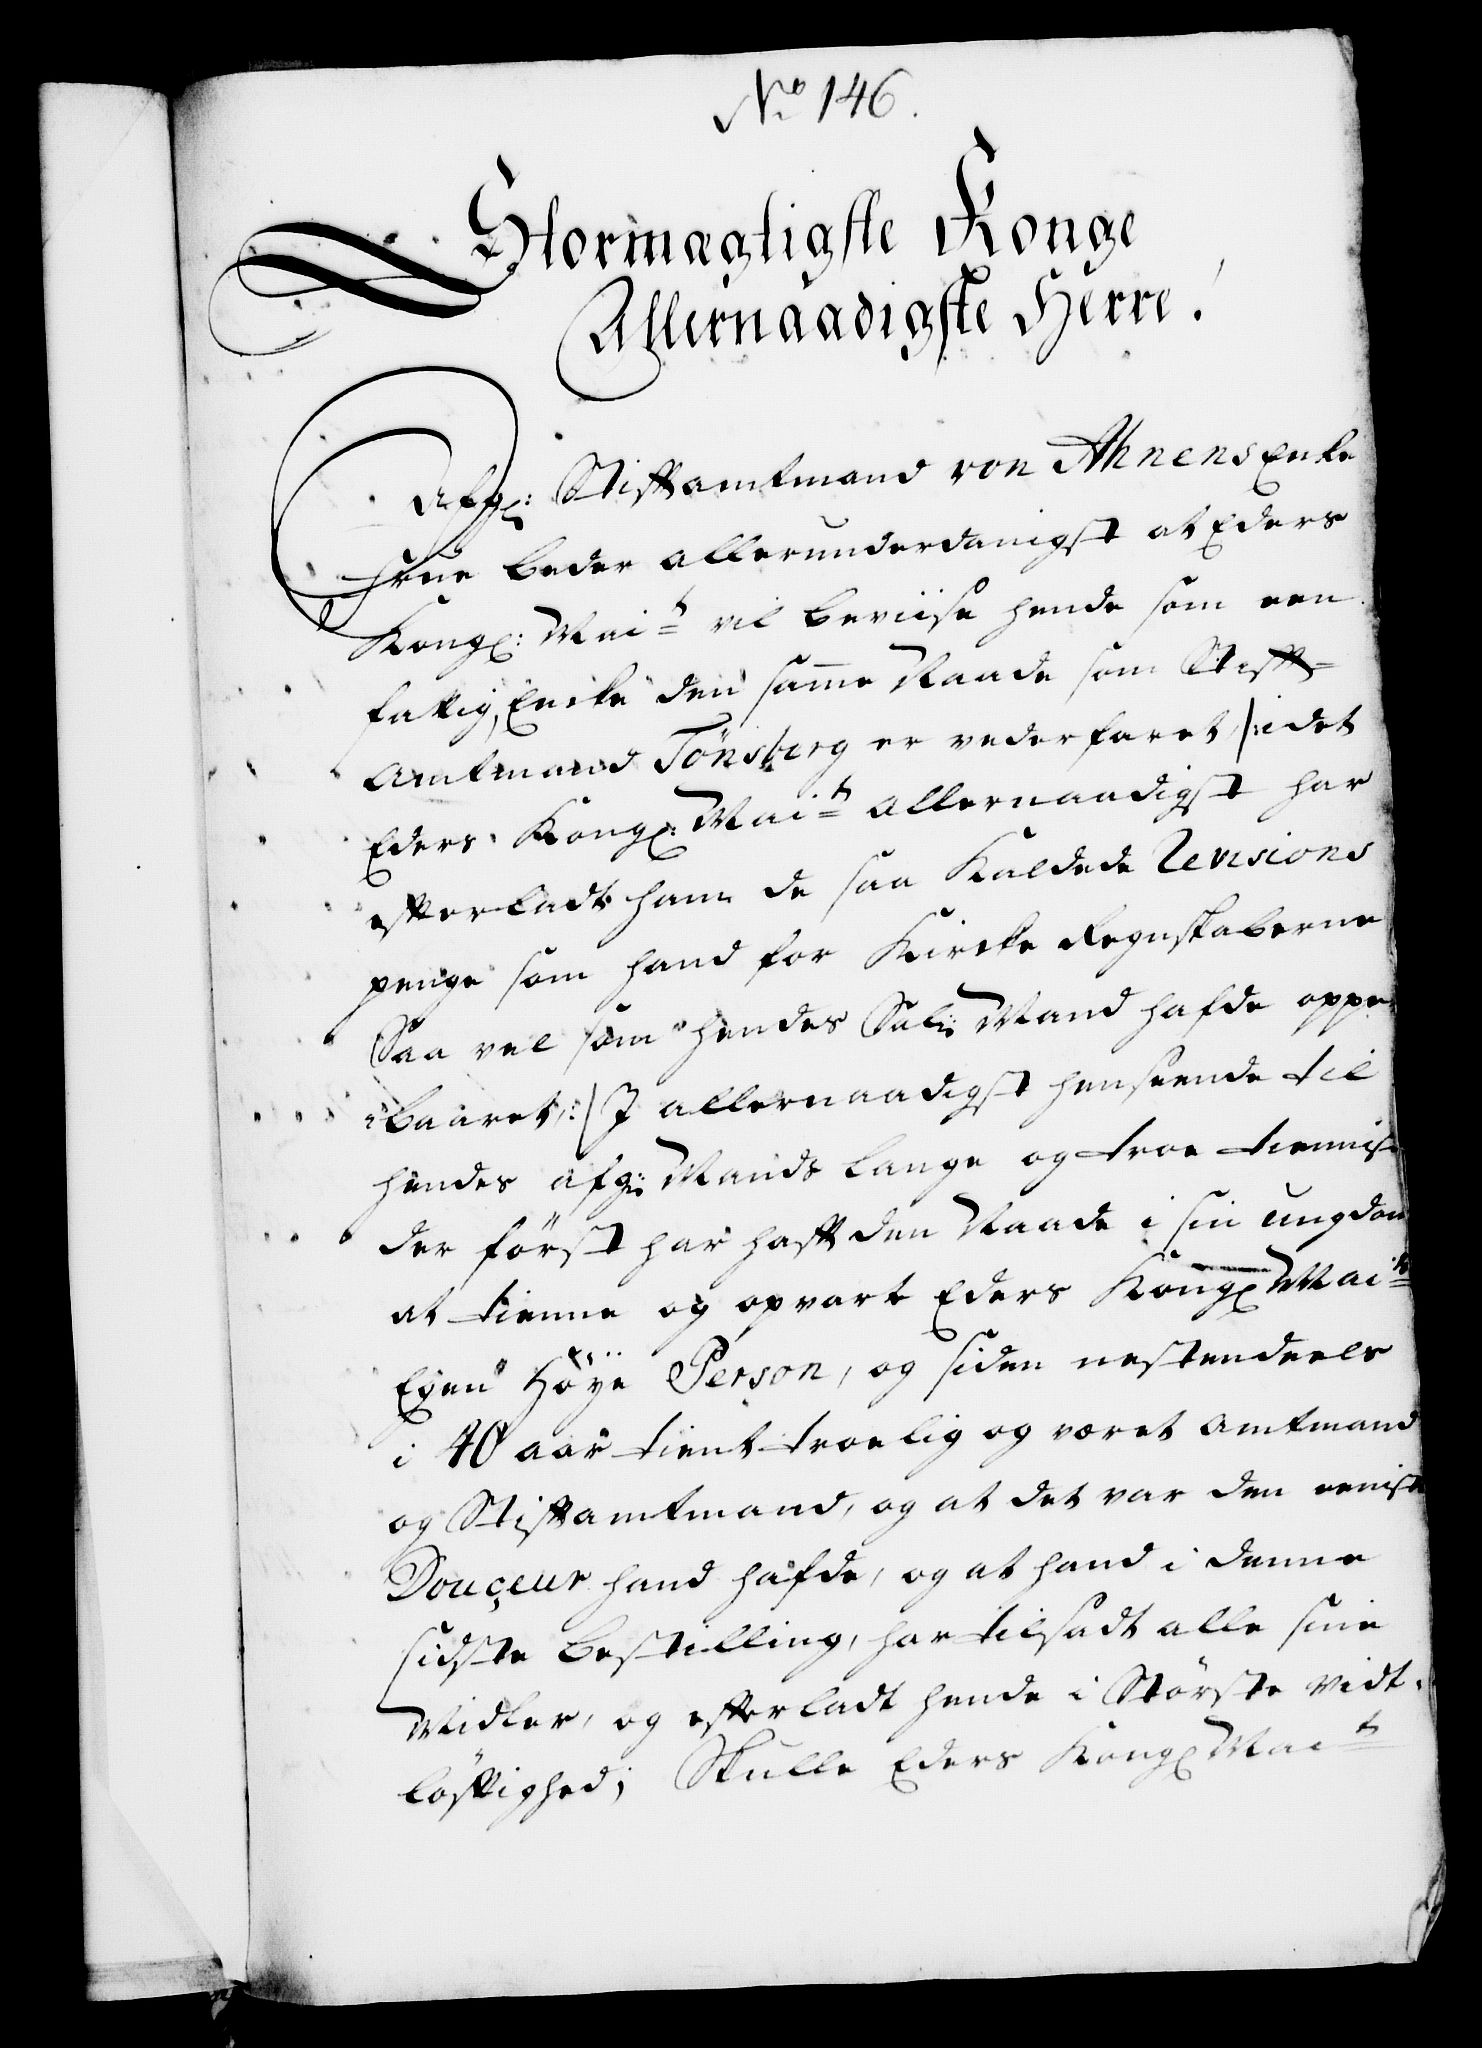 No 146.
Stormægtigste Konge
Allernaadigste Herre!
Afg: Stiftamtmand von Ahnens Enke
Frue beder allerunderdanigst at Eders
Kongl: Mait vil beviise hende som een
fattig Encke den samme Naade som Stift-
Amtmand Tönsberg er vederfaret /: idet
Eders Kongl: Mait Allernaadigst har
efterladt ham de saa Kaldede Revisions
penge som hand for Kircke Regnskaberne
Saa vel som hendes Sal: Mand hafde oppe-
baaret, :/ I allernaadigst henseende til
hendes afg: Mands lange og troe tieniste
der först har hafft den Naade i sin ungdom
at tienne og opvarte Eders Kongl Mait
Egen Höye Person, og siden nestendeels
i 40 aar tient troelig og været Amtmand
og Stiftamtmand, og at det var den eeniste
Douçeur hand hafde, og at hand i denne
sidste bestilling, har tilsadt alle sine
Midler, og efterladt hende i Störste Vidt-
löftighed; Skulle Eders Kongl Mait